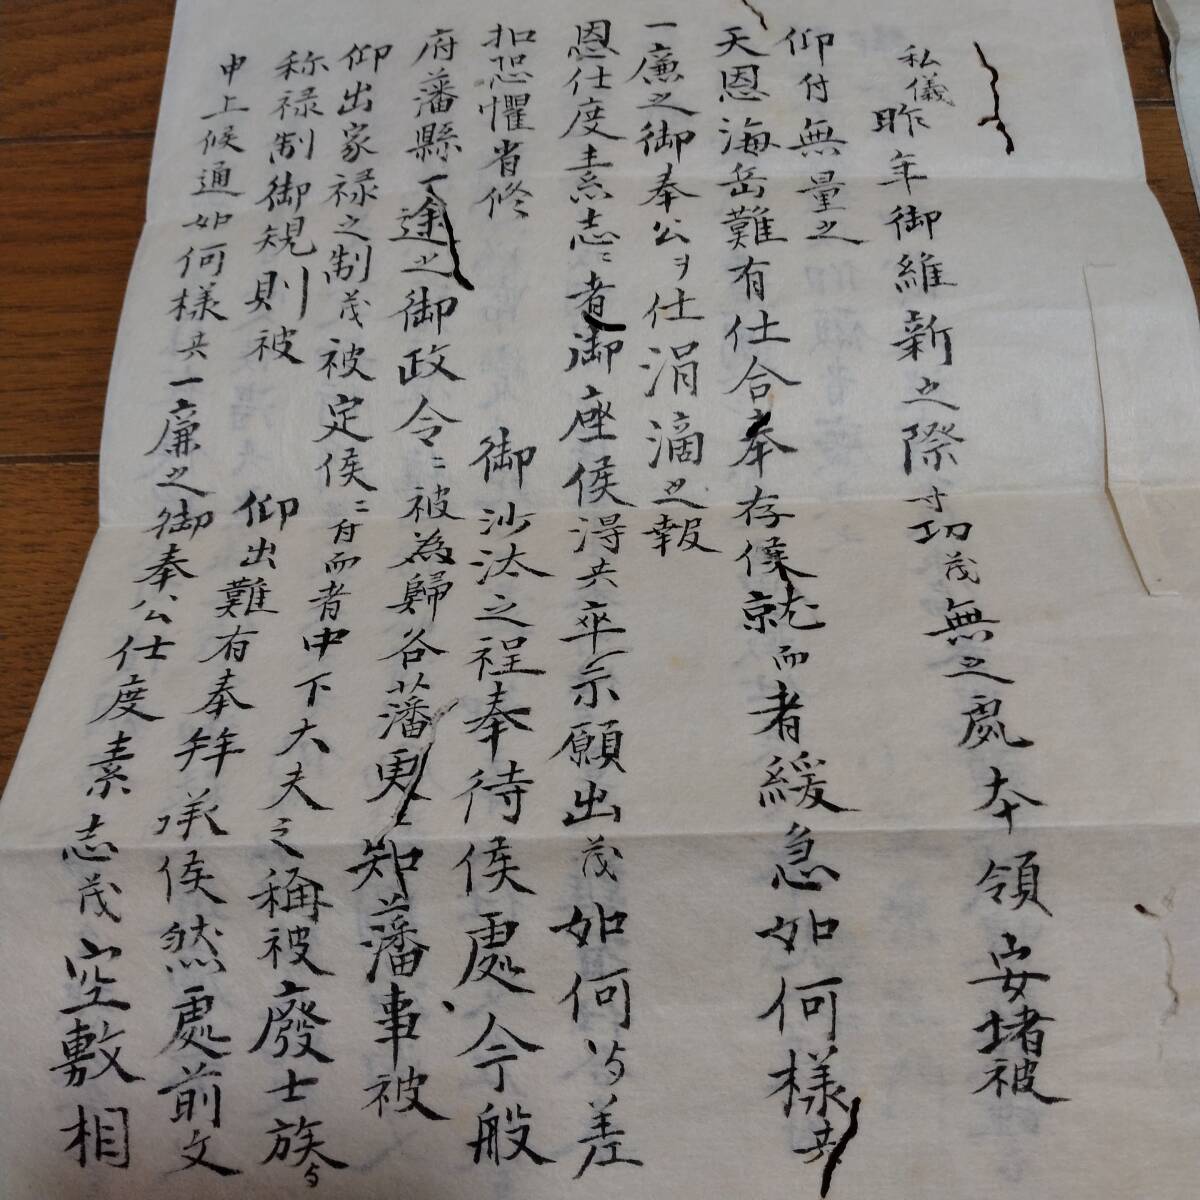 私儀昨年御維新之際寸功茂無之處本領安堵被
仰付無量之
天恩海岳難有仕合奉存候就而者緩急如何様共
一廉之御奉公ヲ仕涓滴之報
恩仕度素志ニ者御座候得共卒示願出茂如何与差
扣恐懼省修
御沙汰之程奉待候處今般
府藩縣一途之御政令ニ被為歸各藩更ニ知藩事被
仰出家禄之制茂被定候ニ付而者中下大夫之稱被廢士族与
称禄制御規則被
仰出難有奉拜承候然處前文
申上候通如何様共一廉之御奉公仕度素志茂空敷相